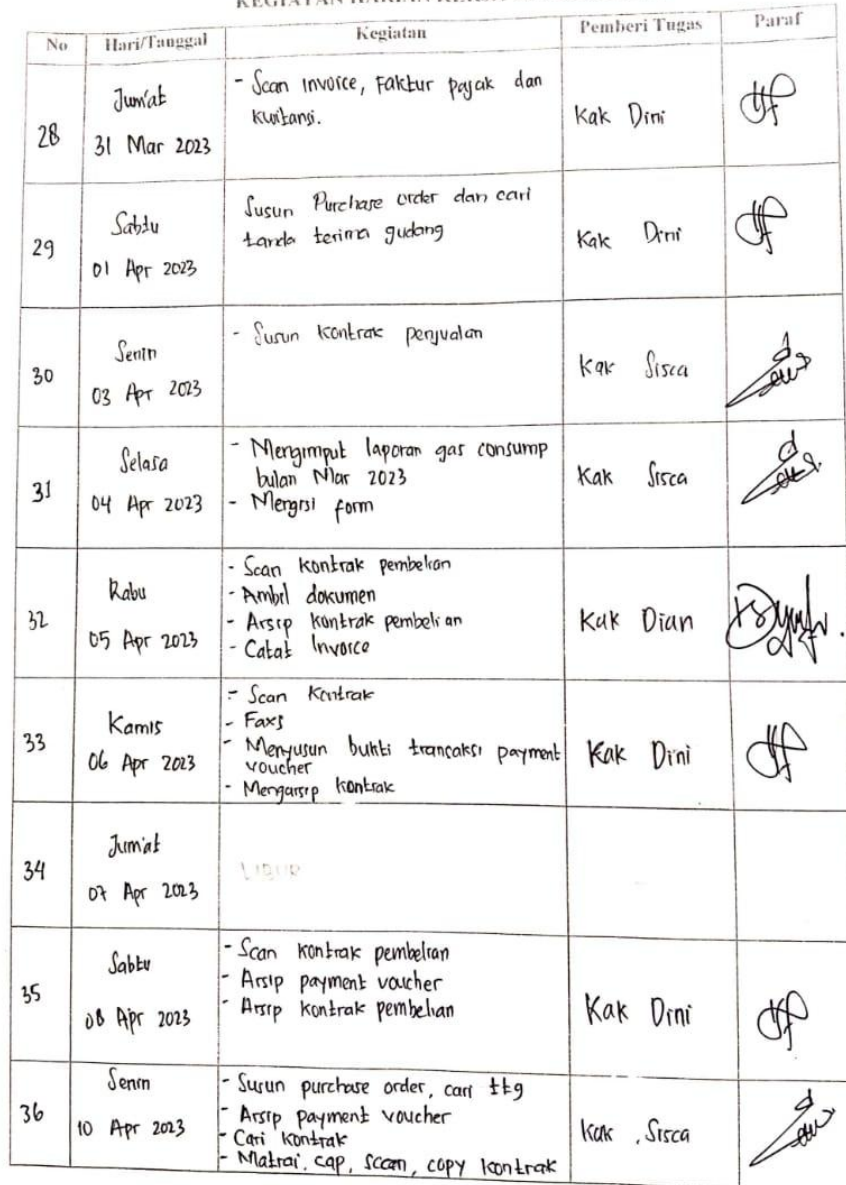 No Hari/Tanggal Kegiatan Pemberi Tugas Paraf
28
Jum'at
31 Mar 2023
- Scan Invoice, Faktur pajak dan
kwitansi.
Kak Dini
29
Sabtu
01 Apr 2023
Susun Purchase order dan cari
tanda terima gudang
Kak Dini
30
Senin
03 Apr 2023
- Susun kontrak penjualan
Kak Sisca
31
Selasa
04 Apr 2023
- Mengimput laporan gas consump
bulan Mar 2023
- Mengisi form
Kak Sisca
32
Rabu
05 Apr 2023
- Scan kontrak pembelian
- Ambil dokumen
- Arsip kontrak pembelian
- Catat Invoice
Kak Dian
33
Kamis
06 Apr 2023
- Scan Kontrak
- Faxs
- Menyusun bukti trancaksi payment
voucher
- Mengarsip kontrak
Kak Dini
34
Jum'at
07 Apr 2023
LIBUR
35
Sabtu
08 Apr 2023
- Scan kontrak pembelian
- Arsip payment voucher
- Arsip kontrak pembelian
Kak Dini
36
Senin
10 Apr 2023
- Susun purchase order, cari ttg
- Arsip payment voucher
- Cari kontrak
- Matrai, cap, scan, copy kontrak
Kak , Sisca